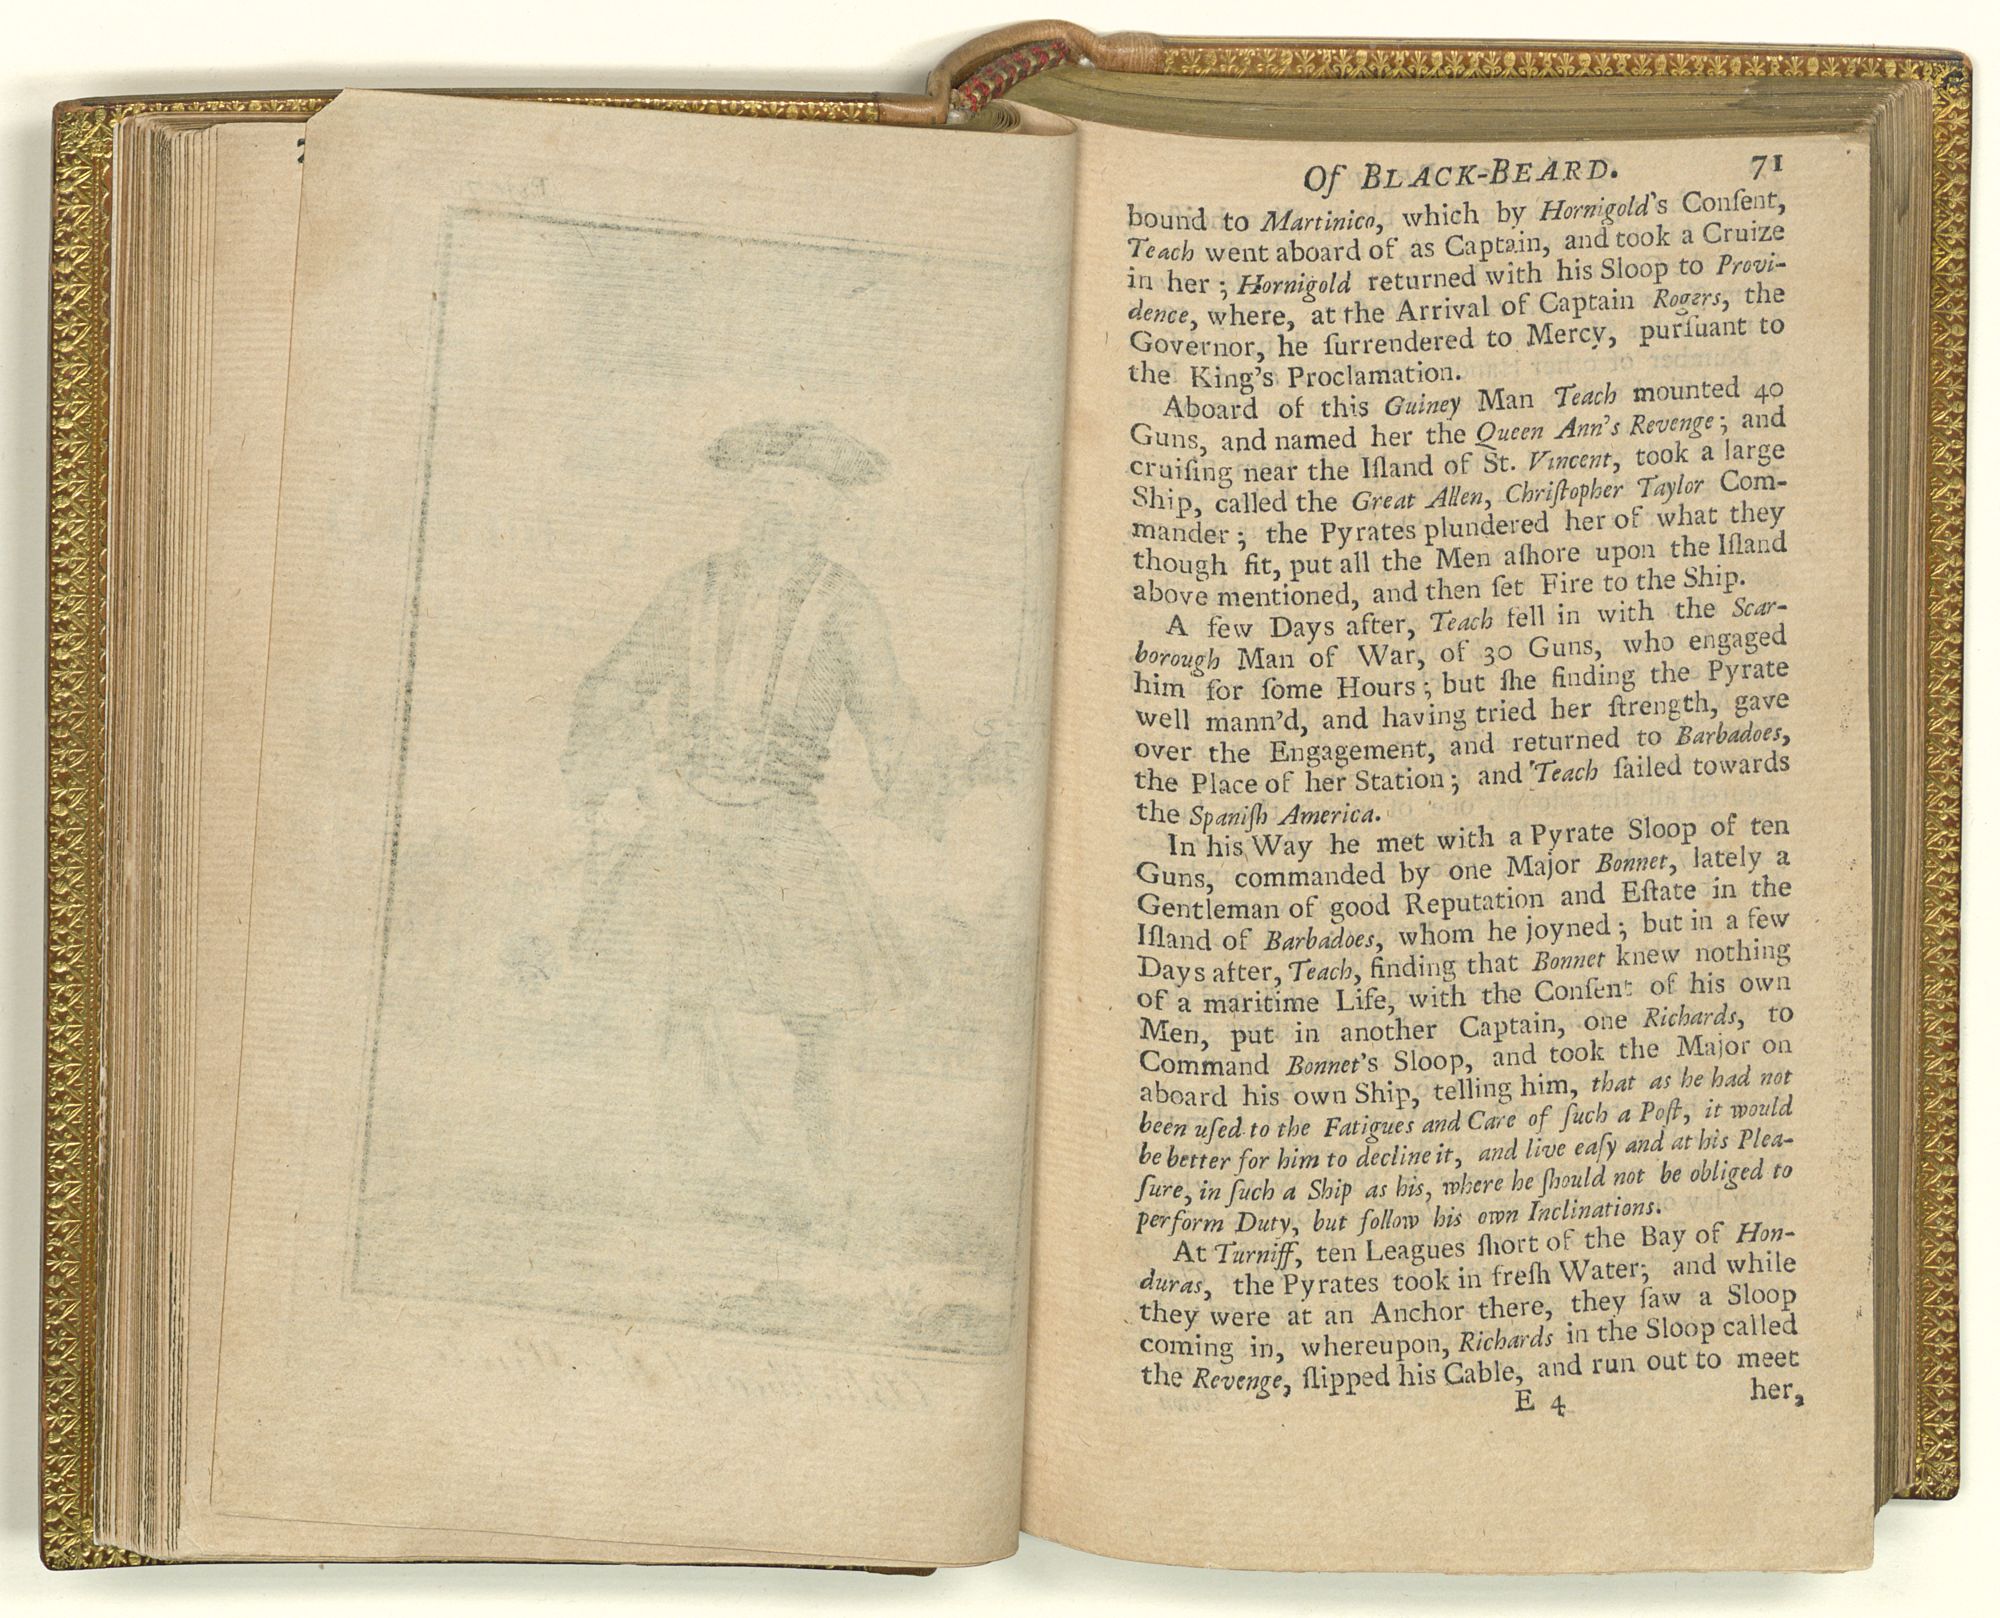 Of BLACK-BEARD. 71
bound to Martinico, which by Hornigold's Conſent,
Teach went aboard of as Captain, and took a Cruize
in her; Hornigold returned with his Sloop to Provi-
dence, where, at the Arrival of Captain Rogers, the
Governor, he ſurrendered to Mercy, purſuant to
the King's Proclamation.
Aboard of this Guiney Man Teach mounted 40
Guns, and named her the Queen Ann's Revenge; and
cruiſing near the Iſland of St. Vincent, took a large
Ship, called the Great Allen, Chriſtopher Taylor Com-
mander; the Pyrates plundered her of what they
though fit, put all the Men aſhore upon the Iſland
above mentioned, and then ſet Fire to the Ship.
A few Days after, Teach fell in with the Scar-
borough Man of War, of 30 Guns, who engaged
him for ſome Hours; but ſhe finding the Pyrate
well mann'd, and having tried her ſtrength, gave
over the Engagement, and returned to Barbadoes,
the Place of her Station; and Teach ſailed towards
the Spaniſh America.
In his Way he met with a Pyrate Sloop of ten
Guns, commanded by one Major Bonnet, lately a
Gentleman of good Reputation and Eſtate in the
Iſland of Barbadoes, whom he joyned; but in a few
Days after, Teach, finding that Bonnet knew nothing
of a maritime Life, with the Conſent of his own
Men, put in another Captain, one Richards, to
Command Bonnet's Sloop, and took the Major on
aboard his own Ship, telling him, that as he had not
been uſed to the Fatigues and Care of ſuch a Poſt, it would
be better for him to decline it, and live eaſy and at his Plea-
ſure, in ſuch a Ship as his, where he ſhould not be obliged to
perform Duty, but follow his own Inclinations.
At Turniff, ten Leagues ſhort of the Bay of Hon-
duras, the Pyrates took in freſh Water; and while
they were at an Anchor there, they ſaw a Sloop
coming in, whereupon, Richards in the Sloop called
the Revenge, ſlipped his Cable, and run out to meet
E 4 her,